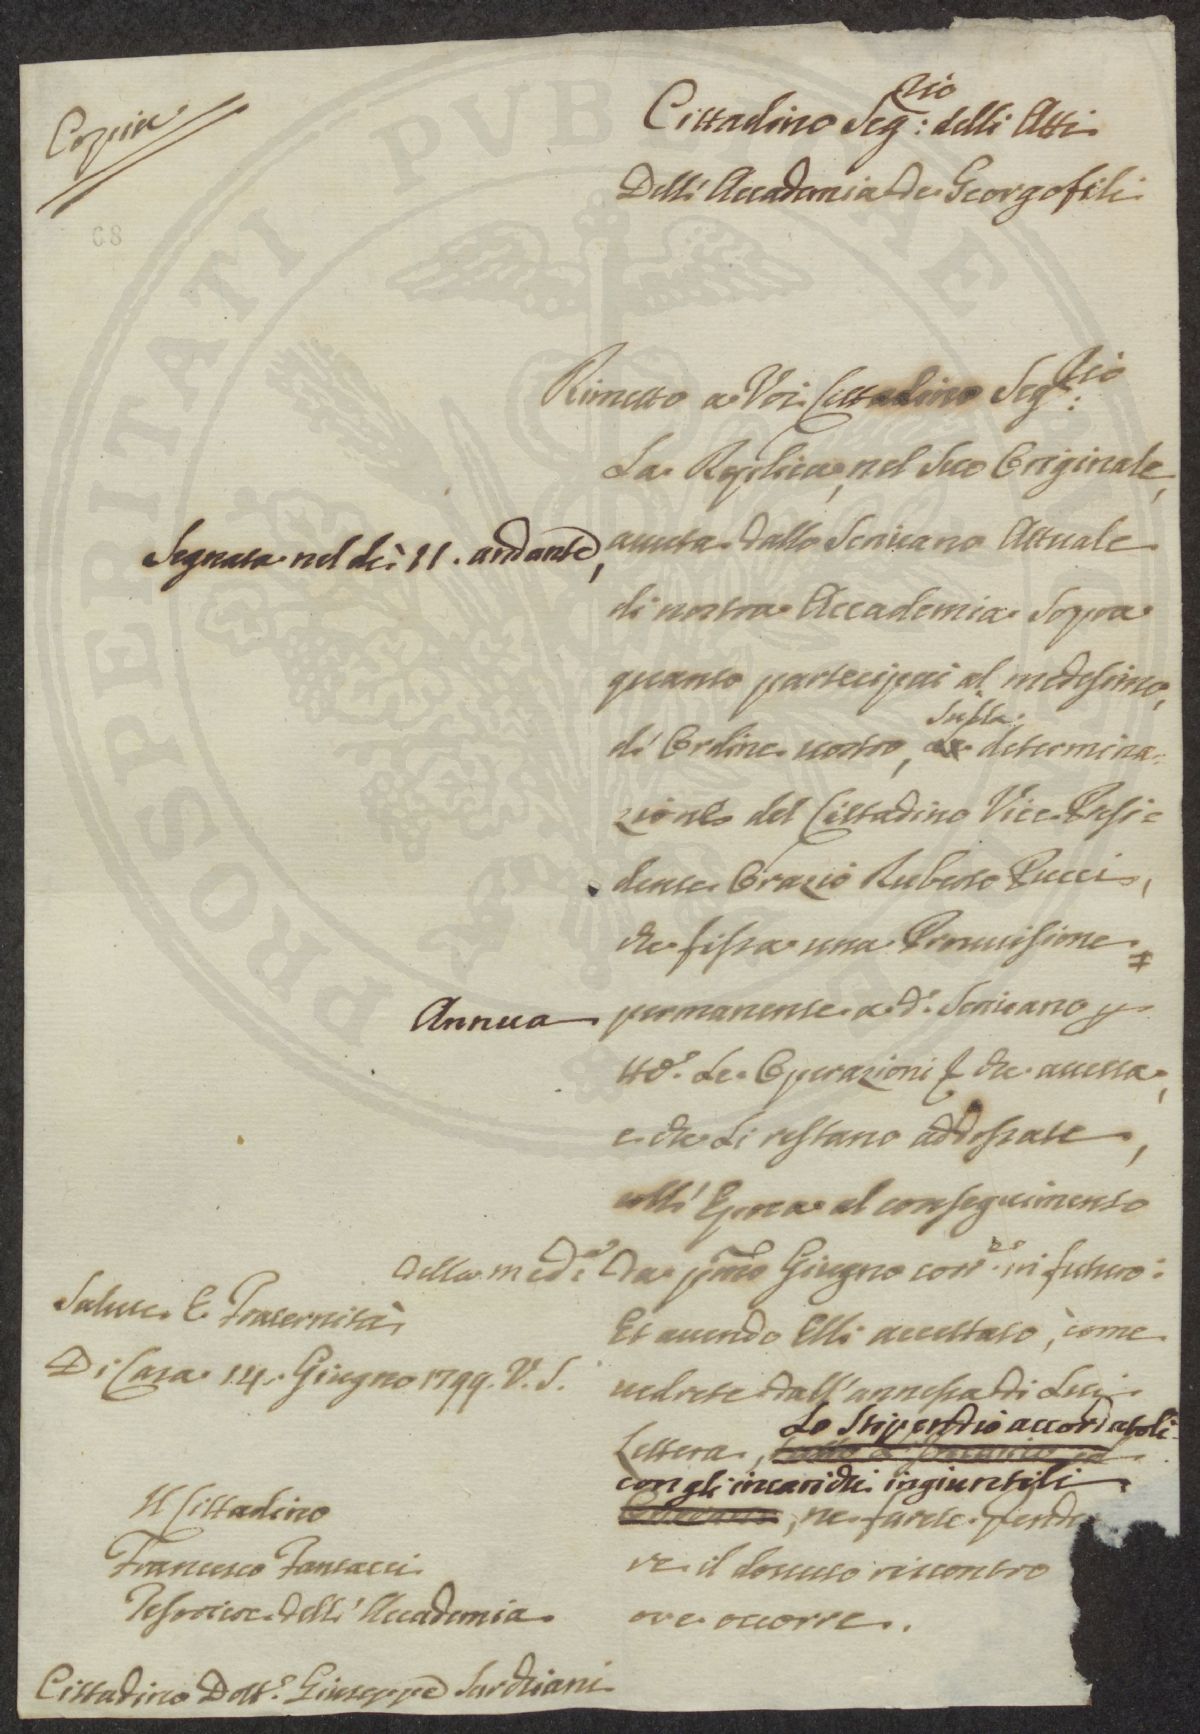 Copia
Cittadino Seg:rio delli Atti
Dell'Accademia de Georgofili
68
Rimetto a Voi Cittadino Seg:rio
La Replica, nel Suo Originale,
Segnata nel dì 11. andante, avuta dallo Scrivano Attuale
di nostra Accademia Sopra
quanto partecipai al medesimo,
di Ordine vostro, Sulla determina:
zione del Cittadino Vice Presi=
dente Orazio Ruberto Pucci,
che fissa una Provvisione
Annua permanente a d.o Scrivano p
tt.e Le Operazioni che avessa,
e che Li restano addossate,
coll'Epoca al conseguimento
della med.a Da p.mo Giugno corr.te in futuro:
Et avendo Elli accettato, come
vedrete dall'annessa di Lui
Lettera, Lo Stipendio accordatoli
con gli incarichi ingiuntili
, ne farete prende
re il dovuto riscontro
ove occorre.
Salute E Fraternità
Di Casa 14. Giugno 1799. V. S.
Il Cittadino
Francesco Fantacci
Tesoriere dell'Accademia
Cittadino Dott.e Giuseppe Sarchiani
PROSPERITATI PUBLICAE